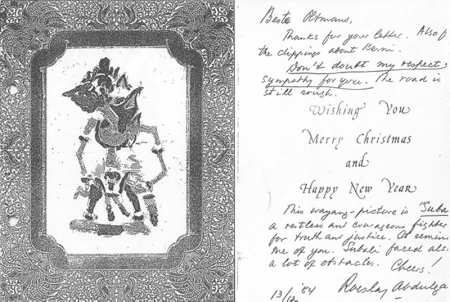 Beste Oltmans,
Thanks for your letter. Also f
the clippings about Berni.
Don't doubt my respect &
sympathy for you. The road is
still rough.
Wishing You
Merry Christmas
and
Happy New Year
This wayang-picture is "Suba
a restless and courageous fighter
for truth and justice. It remin
me of you. Subali faced als
a lot of obstacles. Cheers!
Roeslan Abdulga
13/12 '84